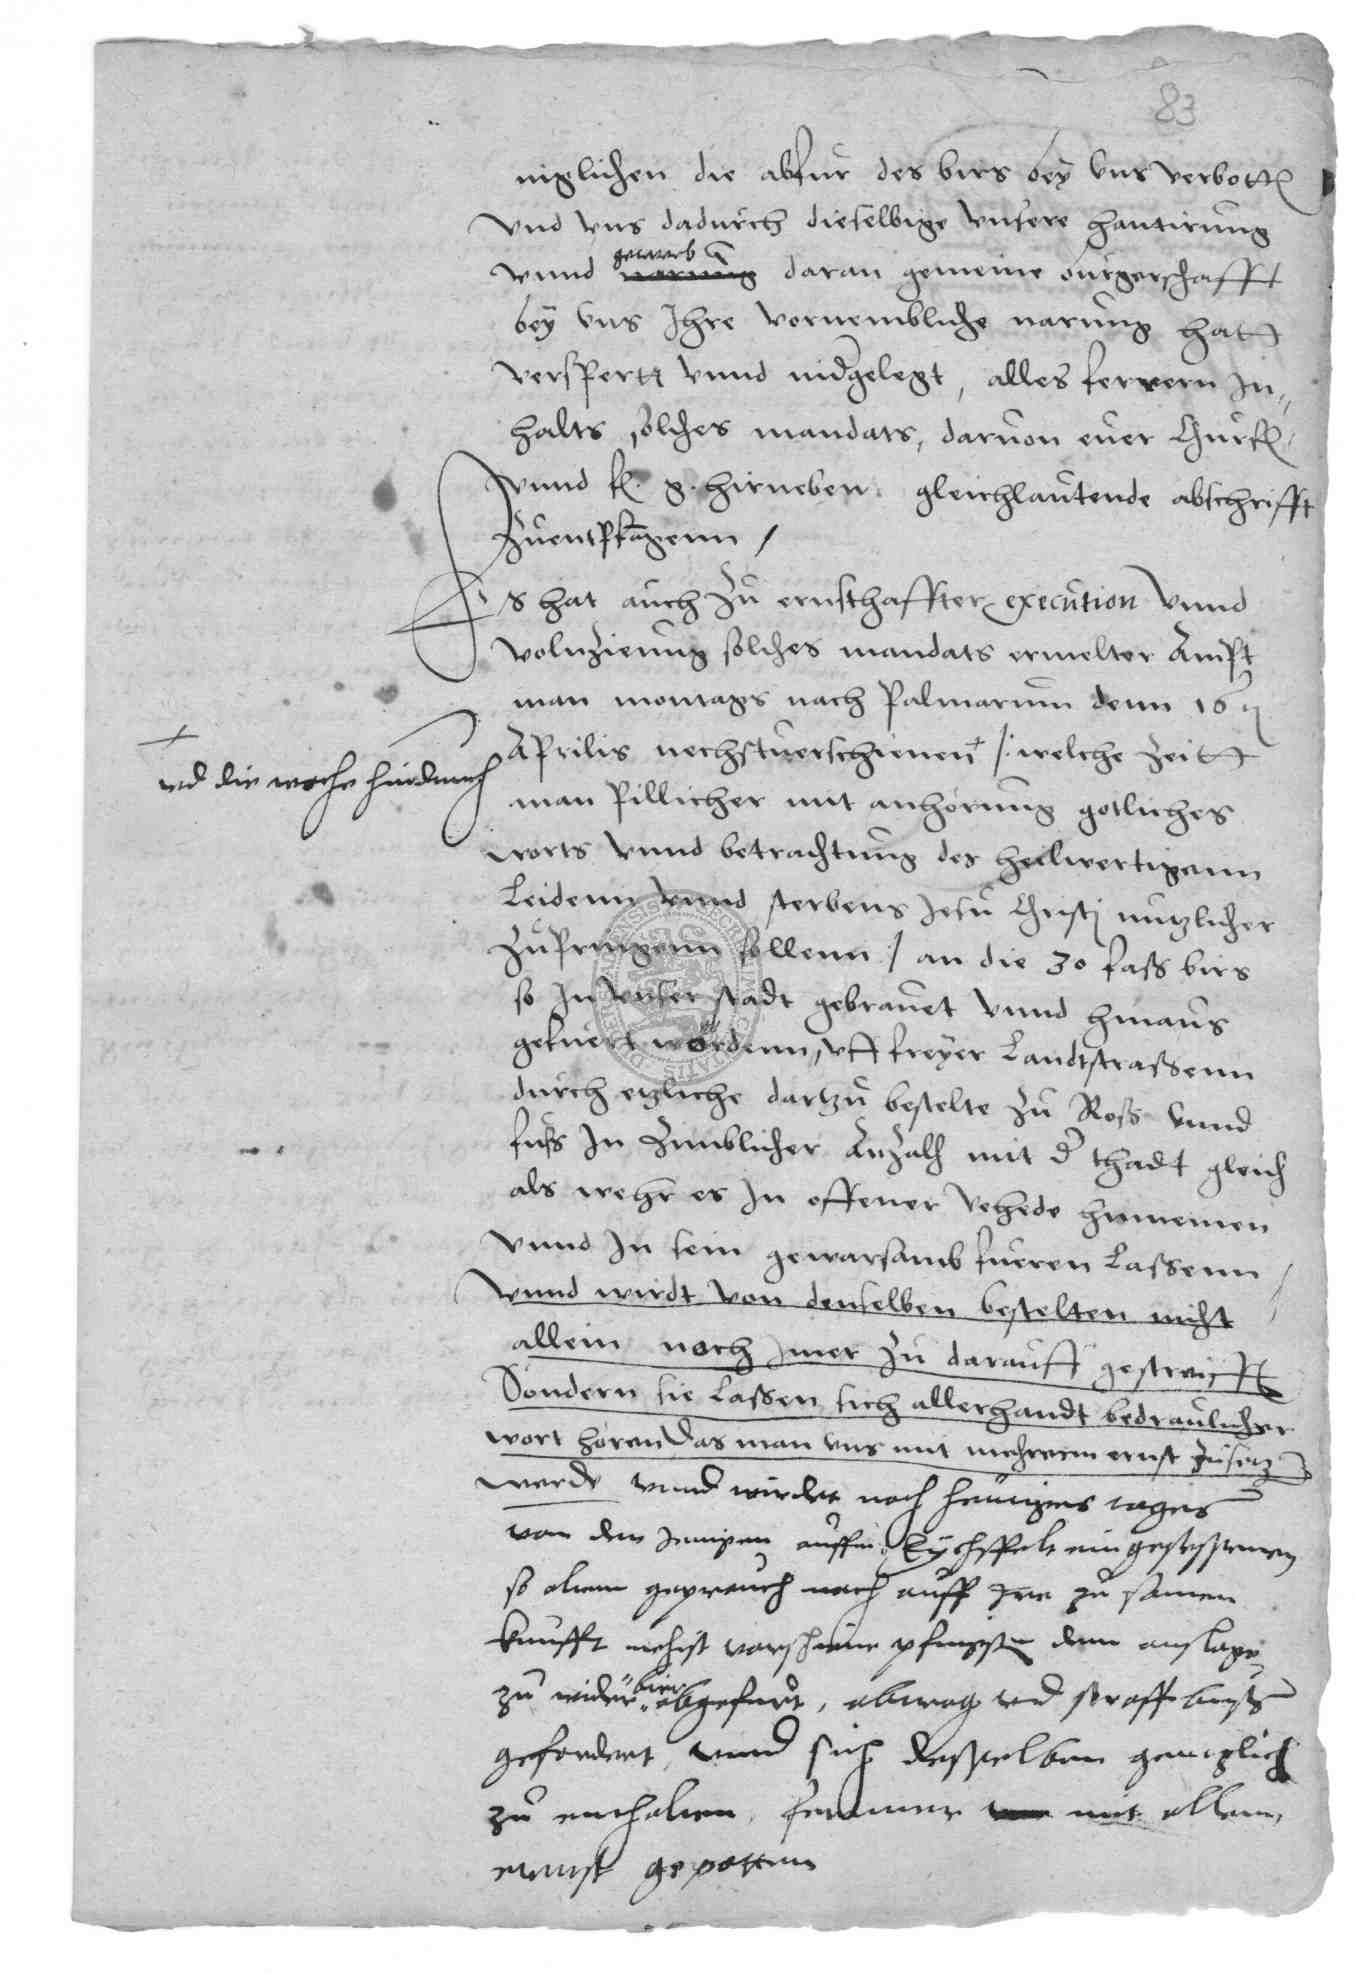 83
niglichen die abfur des birs bey vns verbotten
vnd vns dadurch dieselbige vnsere hantirung
vnnd gewerb narung daran gemeine burgerschafft
bey vns Ihre vornembliche narung hatt
verspertt vnnd nidergelegt, alles ferrern In„
halts solches mandats, daruon euer Churf.
vnnd f. g. hirneben gleichlautende abschrifft
Zuentpfangenn /
Es hat auch Zu ernsthaffter execution vnnd
volnziehung solches mandats ermelter Ampt
man montags nach Palmarum denn 16
Aprilis nechstuerschienen + /: welche Zeitt
+ vnd die woche hindurch
man pillicher mit anhörung gotliches
worts vnnd betrachtung des heilwertigenn
Leidenn vnnd sterbens Jesu Christi nutzlicher
Zupringenn sollenn :/ an die 30 faß birs
so In vnser stadt gebrauet vnnd hinaus
gefuert wordenn, vff freyer Landtstraßenn
durch etzliche dartzu bestelte Zu Roß vnnd
fuß In Zimblicher Anzalh mit der thadt gleich
als wehr es In offener Vehede hinnemen
vnnd In sein gewarsamb fueren Laßenn /
vnnd wirdt von denselben bestelten nicht
allein noch Imer Zu darauff gestreifft
Sondern sie Laßen sich allerhandt bedraulicher
wort horen das man vns mit mehrerm ernst Zusetzen
werde vnnd wirdet noch heutiges tages
von den Jenigen auffm Eychsffelt eingesessenen
so altem geprauch nach auff Ire zu samen
kunfft nehist vorschinne pfingsten dem
zu wider bier abgefurt, abtrag vnd straff
gefordert, vnnd sich desselben gentzlich
zu enthalten, fernner mit allem
ernst gepotten